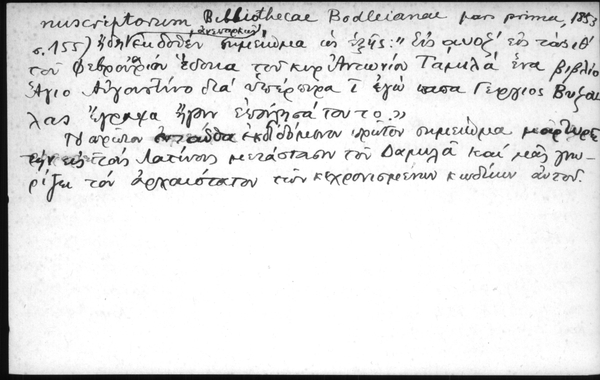 nuscriptorum Bibliothecae Bodleianae pars prima, 1853
σ. 155) ἤδη ἐκδοθὲν σημείωμα ὡς ἑξῆς: " Εἰς αυοζ' εἰς τὰς ιθ'
τοῦ Φεβρουαρίου ἔδωκα τοῦ κυρ Ἀντωνίου Ταμιλᾶ ἕνα βιβλίο
Ἅγιο Αὐγουστίνο διὰ ὑπέρπυρα ῑ ἐγὼ παπα Γεργιος Βυζα
λας ἔγραψα τοῦτο."
Τὸ πρῶτον ἐκδιδόμενον σημείωμα
τὴν εἰς τοὺς Λατίνους μετάστασιν τοῦ Δαμιλᾶ καὶ μᾶς γνω-
ρίζει τὸν ἀρχαιότατον τῶν κεχρονισμένων κωδίκων αὐτοῦ.